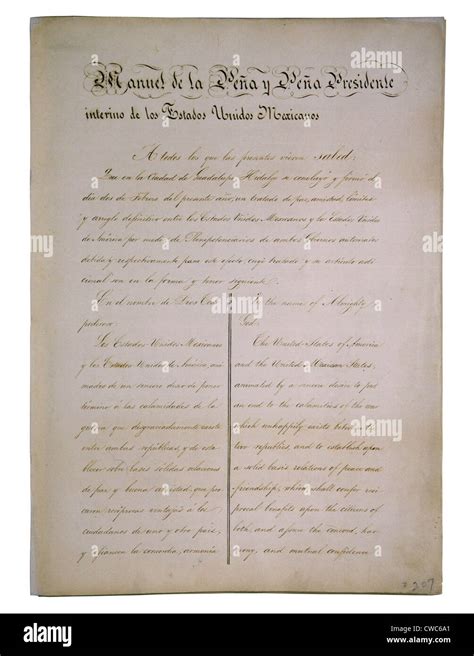 Manuel de la Peña y Peña Presidente
interino de los Estados Unidos Mexicanos
A todos los que las presentes vieren sabed:
Que en la Ciudad de Guadalupe Hidalgo se concluyó y firmó el
día dos de Febrero del presente año, un tratado de paz, amistad, límites
y arreglo definitivo entre los Estados Unidos Mexicanos y los Estados Unidos
de América por medio de Plenipotenciarios de ambos Gobiernos autorizados
debida y respectivamente para este efecto, cuyo tratado y su artículo adi-
cional son en la forma y tenor siguiente.
En el nombre de Dios Todo
poderoso:
Los Estados Unidos Mexicanos
y los Estados Unidos de América, ani-
mados de un sincero deseo de poner
término a las calamidades de la
guerra que desgraciadamente existe
entre ambas repúblicas, y de esta-
blecer sobre bases sólidas relaciones
de paz y buena amistad, que pro-
curen recíprocas ventajas a los
ciudadanos de uno y otro país,
y afiancen la concordia, armonía
In the name of Almighty
God:
The United States of America
and the United Mexican States,
animated by a sincere desire to put
an end to the calamities of the war
which unhappily exists between the
two republics, and to establish upon
a solid basis relations of peace and
friendship, which shall confer reci-
procal benefits upon the citizens of
both, and assure the concord, har-
mony, and mutual confidence
2207
alamy
Image ID: CWC6A1
www.alamy.com